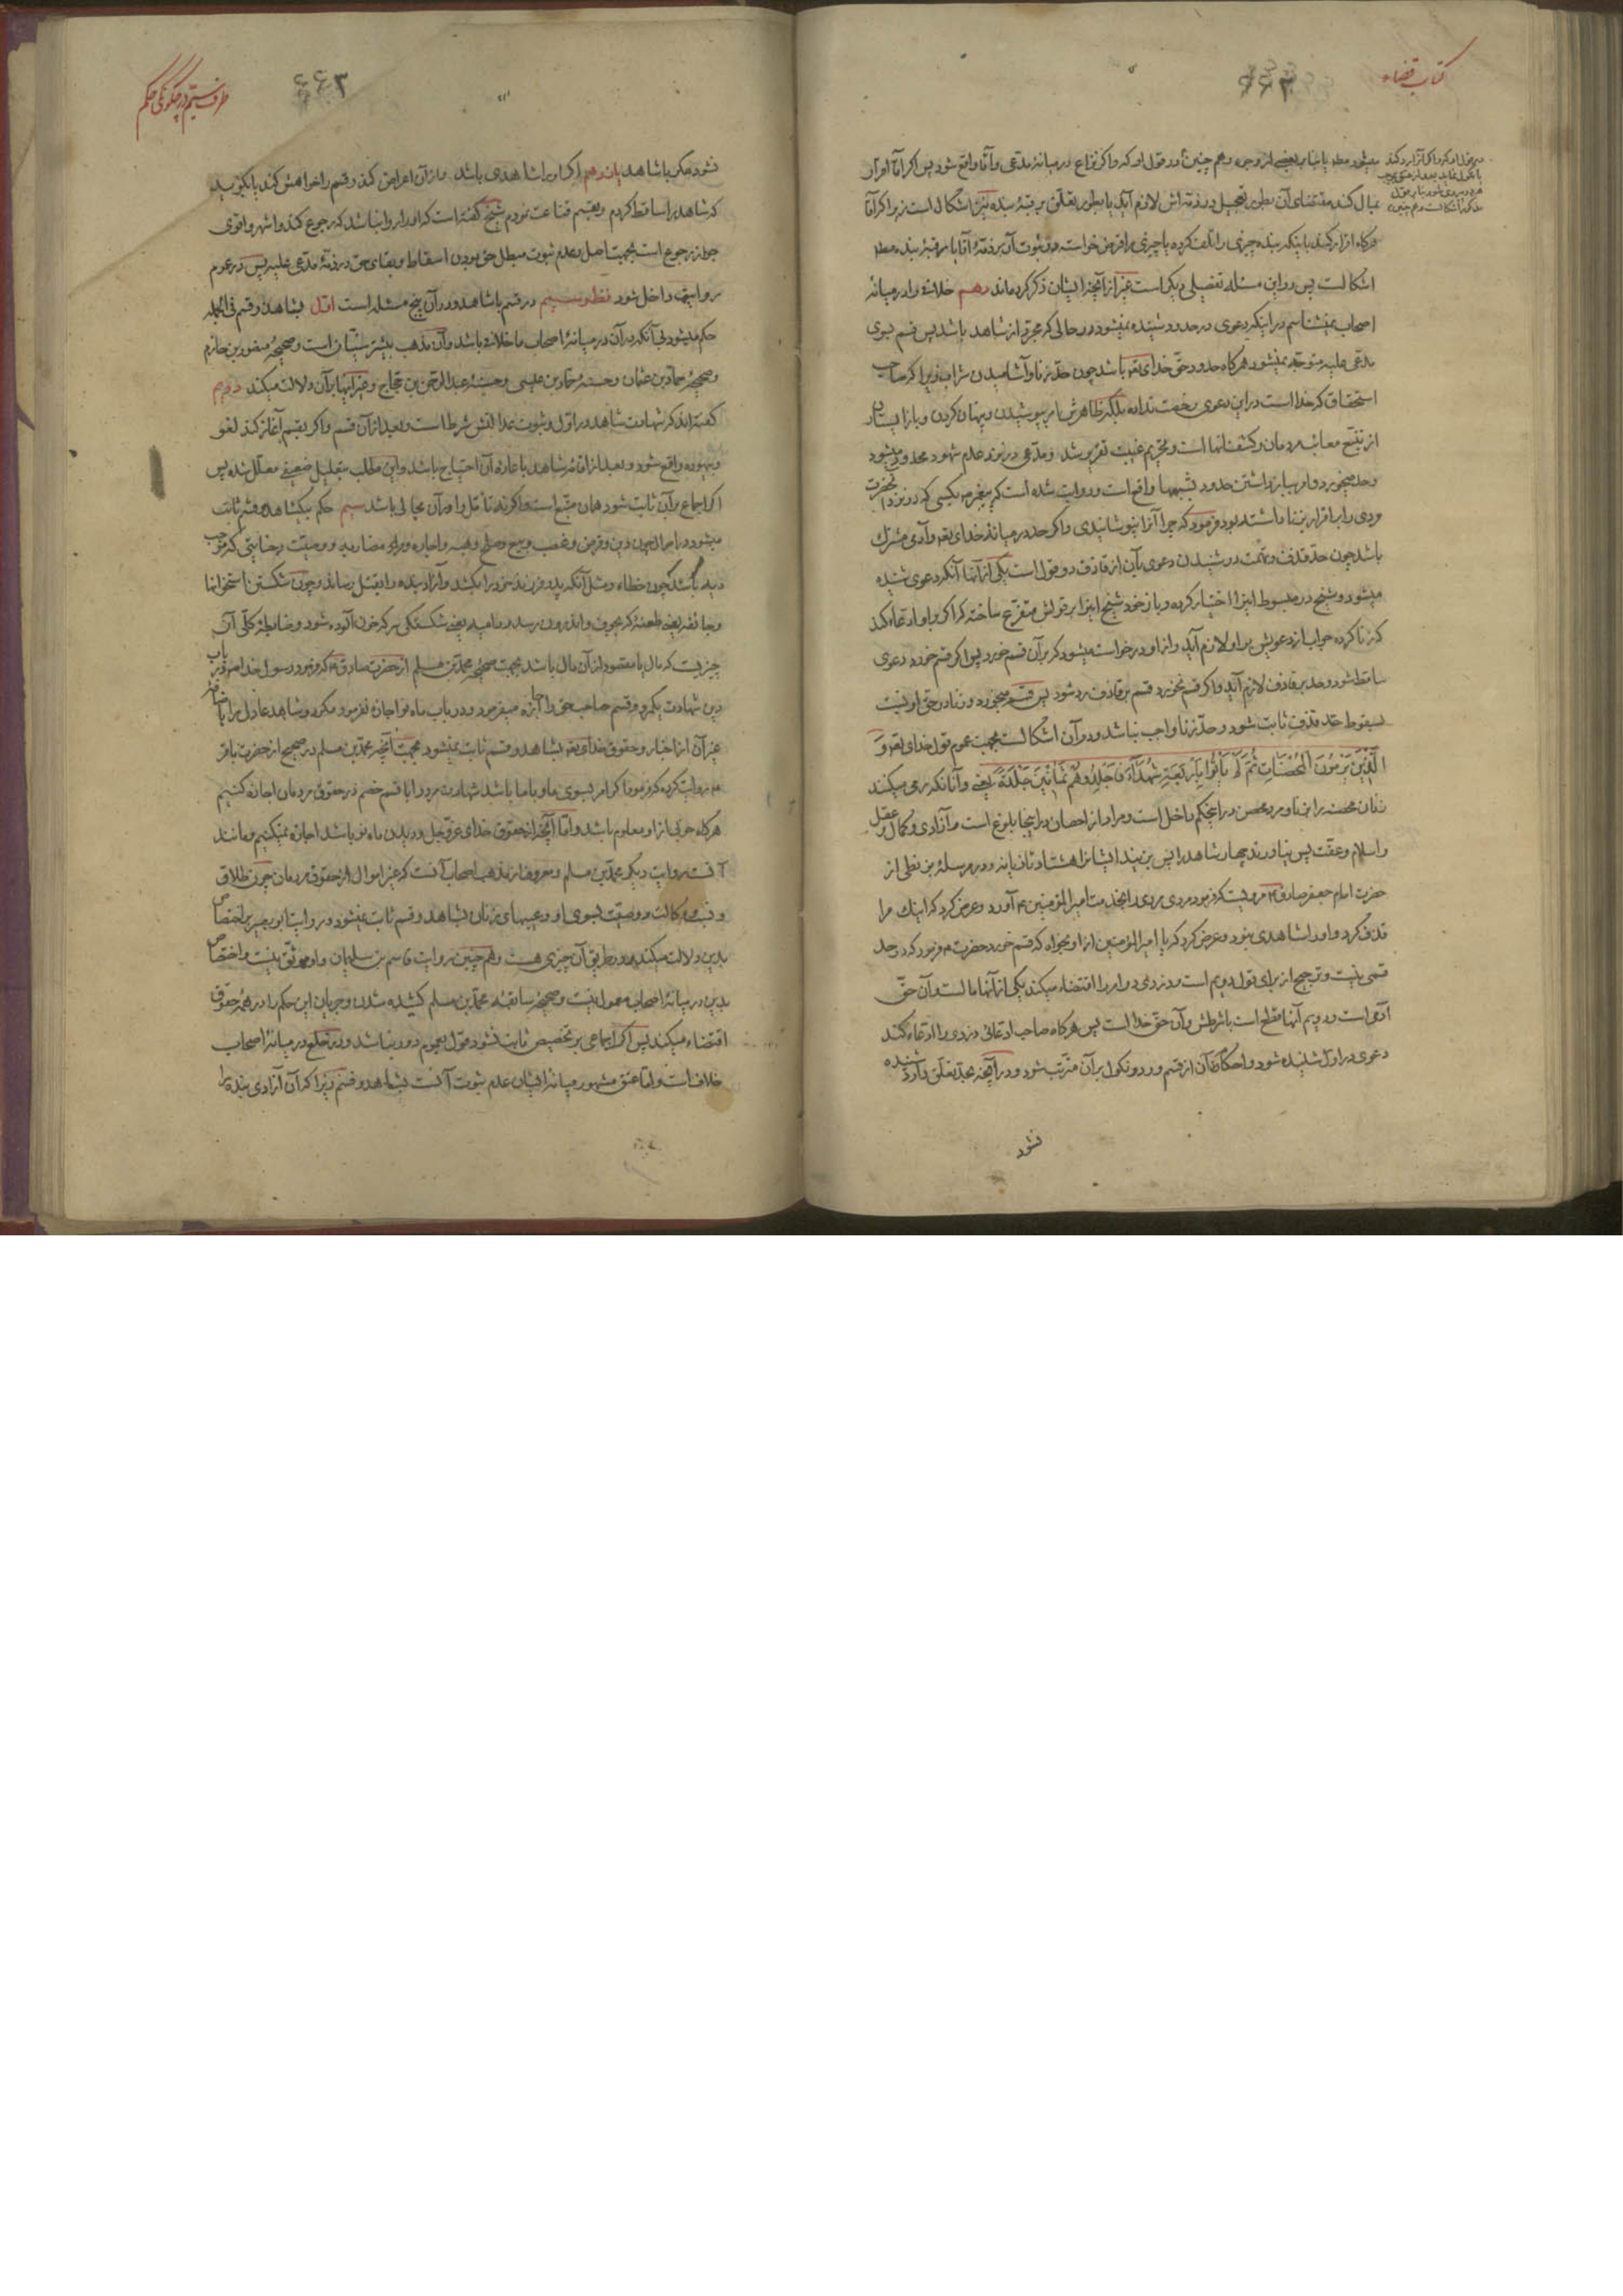 کتاب قضاء
میشود مطلقا یا بنا بر بعضی از وجوه و هم چنین در قول او که واکر نزاع در میانهٔ مدّعی و آقا واقع شود پس اکر آقا اقرار
بمال کند مقتضای آن بطور تعجیل در ذمّه اش لازم آید یا بطور تعلّق برقبهٔ بنده نیز اشکال است زیرا که آقا
هرکاه اقرار کند باینکه بنده چیزی را تلف کرده یا چیزی را قرض خواسته در ثبوت آن بر ذمّهٔ آقا یا برقبهٔ بنده مطلقا
اشکالست پس در این مسئله تفصیلی دیکر است غیر از آنچه ایشان ذکر کرده‌اند دهم خلافی را در میانهٔ
اصحاب نمیشناسم در اینکه دعوی در حدود شنیده نمیشود در حالی که مجرّد از شاهد باشد پس قسم بسوی
مدّعی علیه متوجّه نمیشود هرکاه حدود حقّ خدای تعه باشد چون حدّ زنا و آشامیدن شراب زیرا که صاحب
استحقاق که خدا است در این دعوی رخصت نداده بلکه ظاهرش امر بپوشیدن و پنهان کردن و باز ایستادن
از تتبّع معائب مردمان و کشف آنها است و تحریم غیبت تقریر شد و مدّعی در نزد عدم شهود محدود میشود
وحد میخورد و امر بباز داشتن حدود بشبهها واقع است و روایت شده است که پیغمبر بکسی که در نزد آنحضرت
مردی را باقرار بزنا داشته بود فرمود که چرا آنرا نپوشانیدی واکر حد در میانهٔ خدای تعه و آدمی مشترک
باشد چون حدّ قذف و تهمت در شنیدن دعوی بآن از قاذف دو قول است یکی از آنها آنکه دعوی شنیده
میشود و شیخ در مبسوط اینرا اختیار کرده و باز خود شیخ اینرا بر قولش متفرّع ساخته که اکر کسی بر او ادّعاء کند
که زنا کرده جواب از دعویش بر او لازم آید و از او درخواست میشود که بر آن قسم خورد پس اکر قسم خورد دعوی
ساقط شود و حد بر قاذف لازم آید واکر قسم نخورد قسم بر قاذف رد شود پس قسم میخورد و زنا در حق او نسبت
بسقوط حدّ قذف ثابت شود و حدّ زنا واجب نباشد و در آن اشکالست بجهت عموم قول خدای تعه وَ
الَّذِینَ یَرْمُونَ الْمُحْصَنَاتِ ثُمَّ لَمْ یَأْتُوا بِأَرْبَعَةِ شُهَدَاءَ فَاجْلِدُوهُمْ ثَمَانِینَ جَلْدَةً یعنی و آنانکه رمی میکنند
زنان محصنه را بزنا و مرد محصن در این حکم داخل است و مراد از احصان در اینجا بلوغ است و آزادی و کمال عقل
و اسلام و عفّت پس نیاورند چهار شاهد را پس بزنید ایشانرا هشتاد تازیانه و در مرسلهٔ بزنطی از
حضرت امام جعفر صادق ع مرویست که فرمود مردی مردی را بخدمت امیرالمؤمنین ع آورد و عرض کرد که اینک مرا
قذف کرد و او را شاهدی نبود و عرض کرد که یا امیرالمؤمنین از او بخواه که قسم خورد حضرت ع فرمود که در حد
قسمی نیست و ترجیح از برای قول دویم است و دزدی دو امر را اقتضاء میکند یکی از آنها مالست و آن حقّ
آدمی است و دویم آنها قطع است باشرطش و آن حقّ خدا است پس هرکاه صاحب ادّعائی دزدی را ادّعاء کند
دعوی در اوّل شنیده شود و احکام آن از قسم و رد و نکول بر آن مترتّب شود و در آنچه بحد تعلّق دارد شنیده
نشود
طرف سیّم در چکونکی حکم
۶۶۳
نشود مکر با شاهد یازدهم اکر او را شاهدی باشد و از آن اعراض کند و قسم را خواهش کند یا بکوید
که شاهد را ساقط کردم و بقسم قناعت نمودم شیخ کفته است که او را روا نباشد که رجوع کند و اشهر و اقوی
جواز رجوع است بجهت اصل و عدم ثبوت مبطل حق بودن اسقاط و بقای حق در ذمّهٔ مدّعی علیه پس در عموم
روایتها داخل شود نظر سیم در قسم با شاهد و در آن پنج مسئله است اوّل بشاهد و قسم فی الجمله
حکم میشود بی آنکه در آن در میانهٔ اصحاب ما خلافی باشد و آن مذهب بیشتر سنّیان است و صحیحهٔ منصور بن حازم
و صحیحهٔ حمّاد بن عثمان و حسنهٔ حمّاد بن عیسی و حسنهٔ عبدالرّحمن بن حجّاج و غیر اینها بر آن دلالت میکند دویم
کفته‌اند که شهادت شاهد در اوّل و ثبوت عدالتش شرط است و بعد از آن قسم واکر بقسم آغاز کند لغو
و بیهوده واقع شود و بعد از اقامهٔ شاهد باعادهٔ آن احتیاج باشد و این مطلب بتعلیل ضعیفی معلّل شده پس
اکر اجماع بر آن ثابت شود همان متّبع است واکرنه تأمّل را در آن مجالی باشد سیم حکم بیکشاهد و قسم ثابت
میشود در اموال چون دین و قرض و غصب و بیع و صلح و هبه و اجاره و مضاربه و وصیّت و جنایتی که موجب
دیه باشد چون خطاء و مثل آنکه پدر فرزند خود را بکشد و آزاد بنده را بقتل رساند و چون شکستن استخوانها
و جائفه یعنی طعنهٔ که بجوف و اندرون رسد و دامیه یعنی شکستکی سر که خون آلوده شود و ضابطهٔ کلّی آن
چیزیست که مال یا مقصود از آن مال باشد بجهت صحیحهٔ محمّد بن مسلم از حضرت صادق ع که فرمود رسول خدا ص در باب
دین شهادت یکمرد و قسم صاحب حق را اجازه میفرمود و در باب ماه نو اجازه نفرمود مکر دو شاهد عادل را
غیر آن از اخبار و حقوق خدای تعه بشاهد و قسم ثابت نمیشود بجهت آنچه محمّد بن مسلم در صحیح از حضرت باقر
ع روایت کرده که فرمود اکر امر بسوی ما و با ما باشد شهادت مرد را با قسم خصم در حقوق مردمان اجازه کنیم
هرکاه خوبی از او معلوم باشد و امّا آنچه از حقوق خدای عزّوجل و دیدن ماه نو باشد اجازه نمیکنیم و مانند
آنست روایت دیکر محمّد بن مسلم و معروف از مذهب اصحاب آنست که غیر اموال از حقوق مردمان چون طلاق
و نسب و وکالت و وصیّت بسوی او و عیبهای زنان بشاهد و قسم ثابت نمیشود و روایت ابوبصیر بر اختصاص
بدین دلالت میکند و در طریق آن چیزی هست و هم چنین روایت قاسم بن سلیمان و او موثّق نیست و اختصاص
بدین در میانهٔ اصحاب معمول نیست و صحیحهٔ سابقهٔ محمّد بن مسلم کشیده شدن و جریان این حکم را در همهٔ حقوق
اقتضاء میکند پس اکر اجماعی بر تخصیص ثابت نشود قول بعموم دور نباشد و در خلع در میانهٔ اصحاب
خلاف است و امّا عتق مشهور میانهٔ ایشان عدم ثبوت آنست بشاهد و قسم زیرا که آن آزادی بنده را